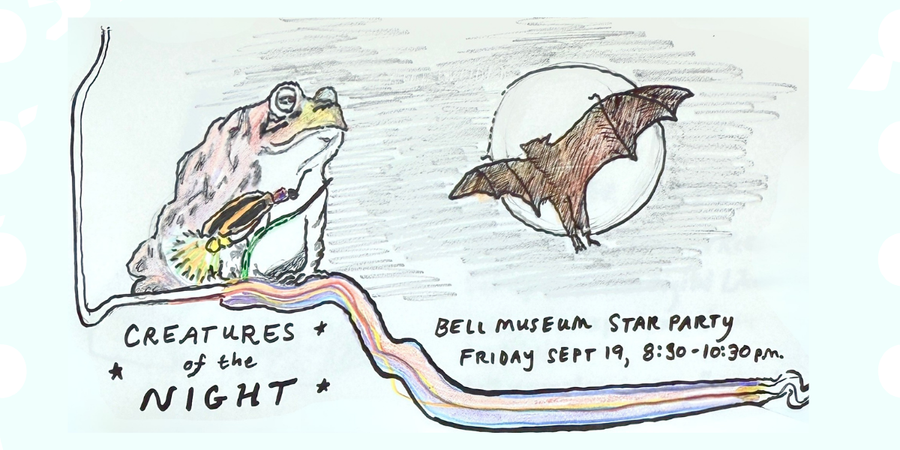 CREATURES
of the
NIGHT
BELL MUSEUM STAR PARTY
FRIDAY SEPT 19, 8:30-10:30 PM.